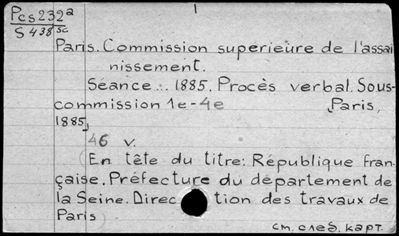 Pcs232a
S438sc
1
Paris. Commission supérieure de l'assai
nissement.
Séance ... 1885. Procès verbal. Sous-
commission 1e-4e
Paris,
1885.
46 v.
(En tête du titre: République fran-
çaise. Préfecture du département de
la Seine. Direc tion des travaux de
Paris)
см. след. карт.